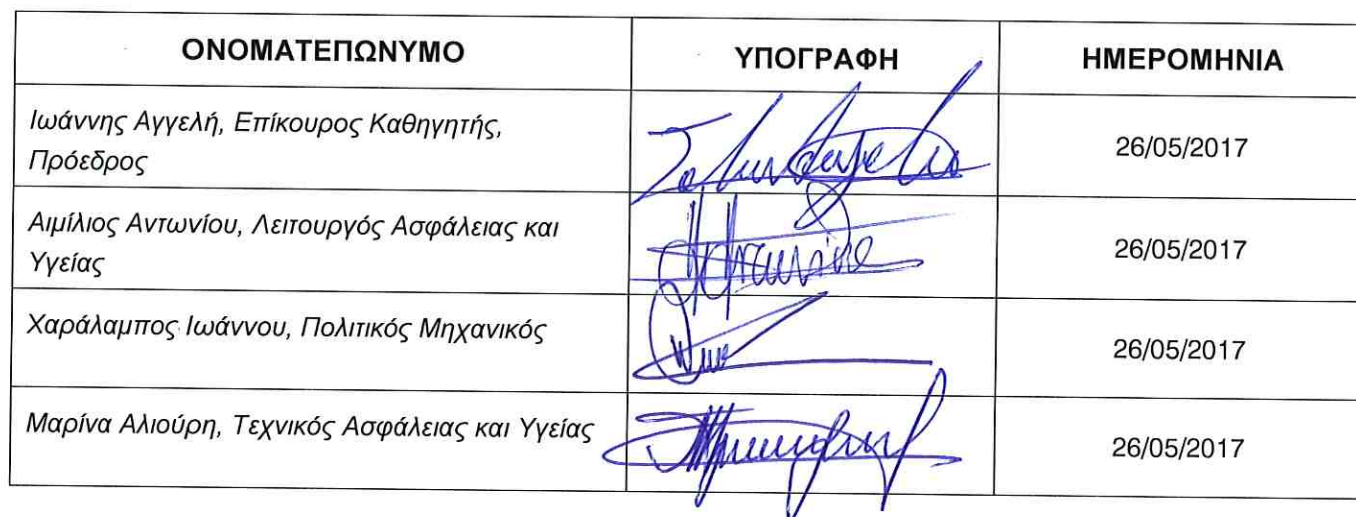 ΟΝΟΜΑΤΕΠΩΝΥΜΟ ΥΠΟΓΡΑΦΗ ΗΜΕΡΟΜΗΝΙΑ
Ιωάννης Αγγελή, Επίκουρος Καθηγητής,
Πρόεδρος
26/05/2017
Αιμίλιος Αντωνίου, Λειτουργός Ασφάλειας και
Υγείας
26/05/2017
Χαράλαμπος Ιωάννου, Πολιτικός Μηχανικός
26/05/2017
Μαρίνα Αλιούρη, Τεχνικός Ασφάλειας και Υγείας
26/05/2017